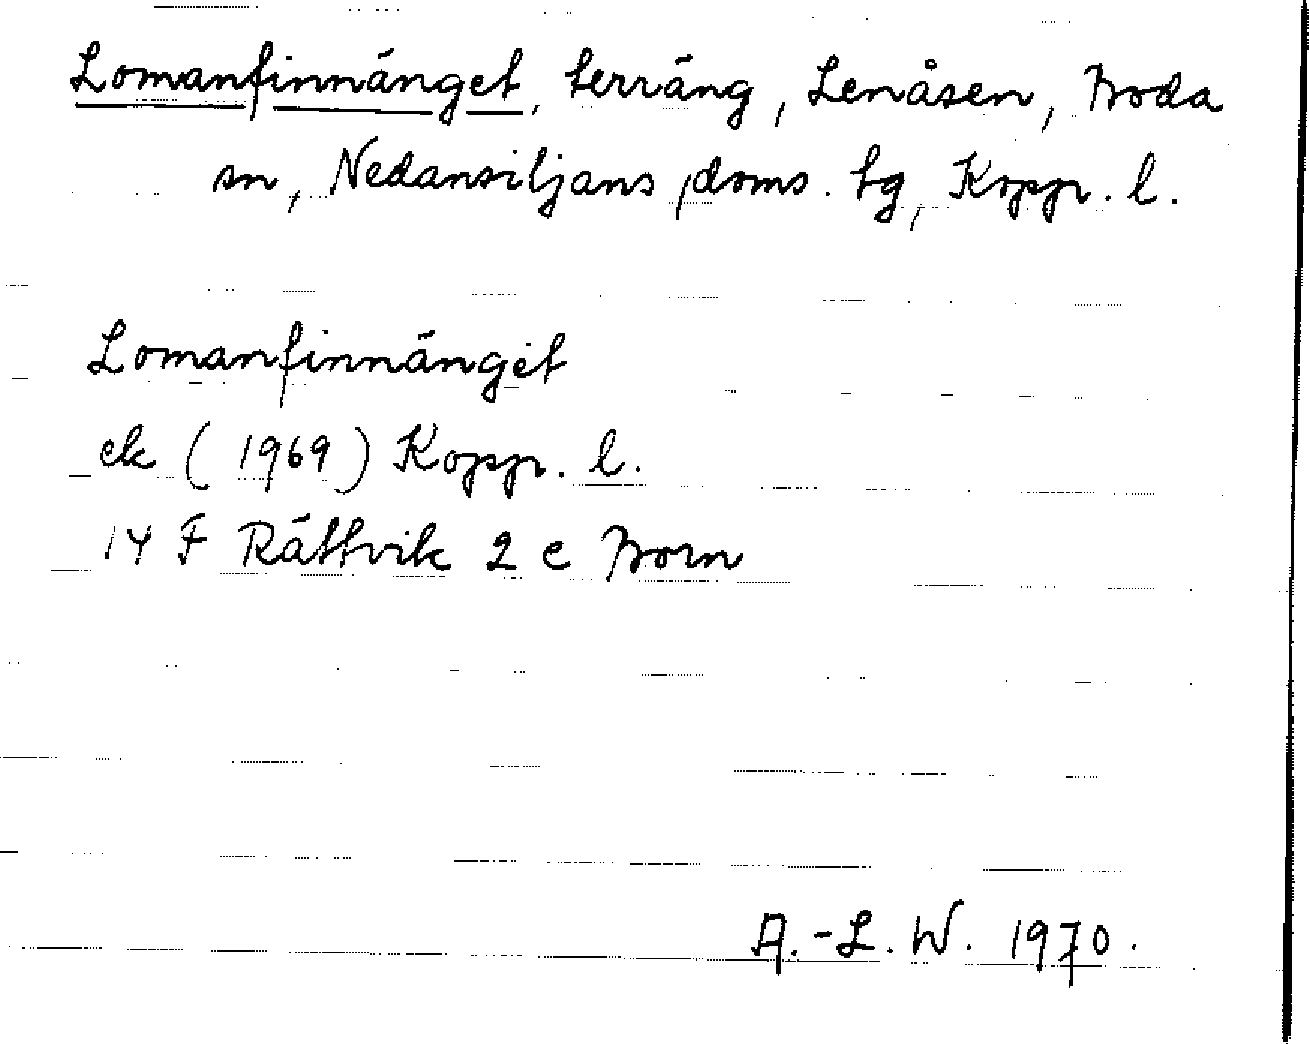 Lomanfinnänget, terräng, Lenåsen, Boda
sn, Nedansiljans doms. tg, Kopp. l.
Lomanfinnänget
ek (1969) Kopp. l.
14 F Rättvik 2 e Born
A.-L. W. 1970.